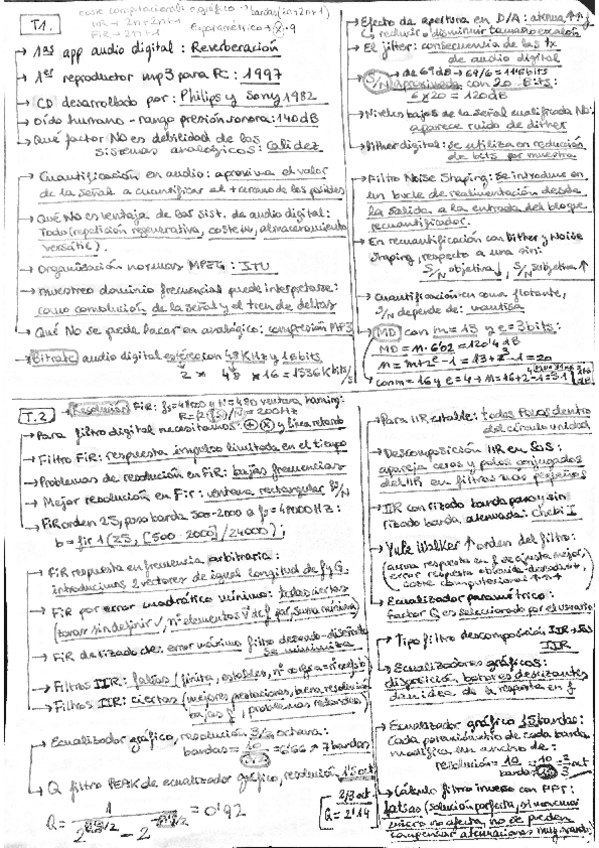 T1.
coste computacional: e.gráfico → bandas(2n+2n+1)
IIR → 2n+2n+1
FiR → 2n+1
→ 1as app audio digital: Reverberación
→ 1er reproductor mp3 para PC: 1997
→ CD desarrollado por: Philips y Sony 1982
→ Oído humano - rango presión sonora: 140dB
→ Qué factor NO es debilidad de los
sistemas analógicos: Calidez
→ Cuantificación en audio: aproxima el valor
de la señal a cuantificar al + cercano de los posibles
→ Qué NO es ventaja de los sist. de audio digital:
Todo (repetición regenerativa, coste ↓, almacenamiento
versátil).
→ Organización normas MPEG: ITU
→ muestreo dominio frecuencias puede interpretarse:
como convolución de la señal y el tren de deltas
→ Qué No se puede hacer en analógico: compresión MP3
→ Bitrate audio digital estéreo con 48KHz y 16bits
2 × 48 × 16 = 1536 Kbits/s
→ Efecto de apertura en D/A: atenúa ↑f
↳ reducir o disminuir tamaño escalón
→ El jitter: consecuencia de las tx
de audio digital
→ S/N aproximada con 20 Bits:
6 × 20 = 120dB
→ Niveles bajos de la señal cuantificada NO:
aparece ruido de dither
→ Dither digital: se utiliza en reducción
de bits por muestra
→ Filtro Noise Shaping: Se introduce en
un bucle de realimentación desde
la salida a la entrada del bloque
recuantificador.
→ En recuantificación con Dither y Noise
Shaping, respecto a una sin:
S/N objetiva ↓, S/N subjetiva ↑
→ Cuantificación en coma flotante,
S/N depende de: mantisa
→ MD con m=13 y e=3bits:
MD = n·6'02 = 120'4dB
n = m+2^e-1 = 13+2^3-1 = 20
→ con m=16 y e=4 → n=16+2^4-1=31
T.2
→ Resolución FiR: fs=48000 N=480 ventana, hanning:
→ Para filtro digital necesitamos: ⊕ ⊗ y línea retardo
→ Filtro FiR: respuesta impulso limitada en el tiempo
→ Problemas de resolución en FiR: bajas frecuencias
→ Mejor resolución en Fir: ventana rectangular fs/N
→ FiR orden 25, paso banda 500-2000 a fs=48000Hz:
b = fir1(25, [500 2000]/24000);
→ FiR respuesta en frecuencia arbitraria:
introducimos 2 vectores de igual longitud de f y G.
→ FiR por error cuadrático mínimo: todas ciertas
→ FiR de rizado cte: error máximo filtro deseado-diseñado
se minimiza
→ Filtros IIR: falsas
→ Filtros IIR: ciertas (mejores prestaciones, buena resolución
bajas f, problemas redondeo)
→ Ecualizador gráfico, resolución 3/2 octava:
bandas = 10 = 6'66 → 7 bandas
→ Q filtro PEAK de ecualizador gráfico, resolución 1'5 oct
Q = 1 = 0'92
2/3 oct
Q = 2'14
→ Para IIR estable: todos Polos dentro
del círculo unidad
→ Descomposición IIR en SOS:
apareja ceros y polos conjugados
del IIR en filtros más pequeños
→ IIR con rizado banda paso y sin
rizado banda atenuada: Chebi I
→ Yule Walker ↑ orden del filtro:
coste computacional ↑↑↑
→ Ecualizador paramétrico:
factor Q es seleccionado por el usuario
→ Tipo filtro descomposición IIR → SOS
IIR
→ Ecualizadores gráficos:
disposición botones deslizantes
dan idea de la respuesta en f
→ Ecualizador gráfico 15 bandas:
Cada potenciómetro de cada banda
modifica un ancho de:
resolución = 10/bandas = 10/15 = 2/3 oct
→ Cálculo filtro inverso con FFT:
falsas (solución perfecta, si movemos
micro no afecta, no se pueden
compensar atenuaciones muy grandes)